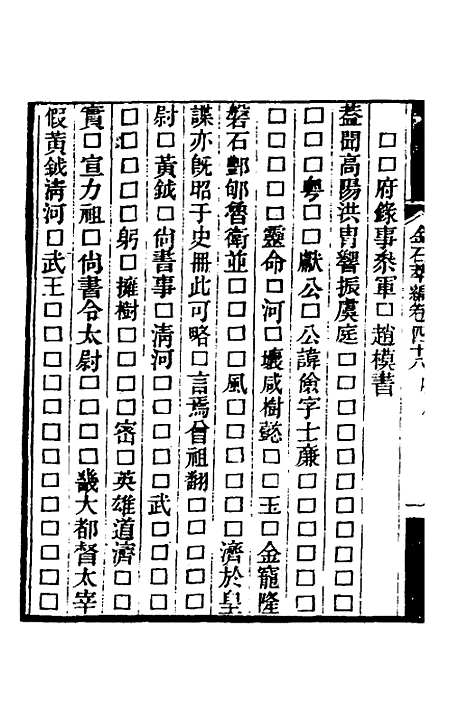 □□府錄事叅軍□趙模書
蓋聞高陽洪胄響振虞庭□□□□□□□□□□
□□□□粤□□獻公□公諱儉字士廉□□□□□
□□□□□□靈命□河□壤咸樹懿□□玉□金寵隆
磐石酆郇魯衞並□□□□風□□□□□□□濟於皇
謀亦旣昭于史冊此可略□言焉曾祖翻□□□□□□
尉□黃鉞□尙書事□淸河□□□□□□武□□□□
□□□□□躬□擁樹□□□□□□密□英雄道濟□□
實□宣力祖□尙書令太尉□□□□□畿大都督太宰
假黃鉞淸河□武王□□□□□□□□□□□□□□□
金石萃編卷四十六